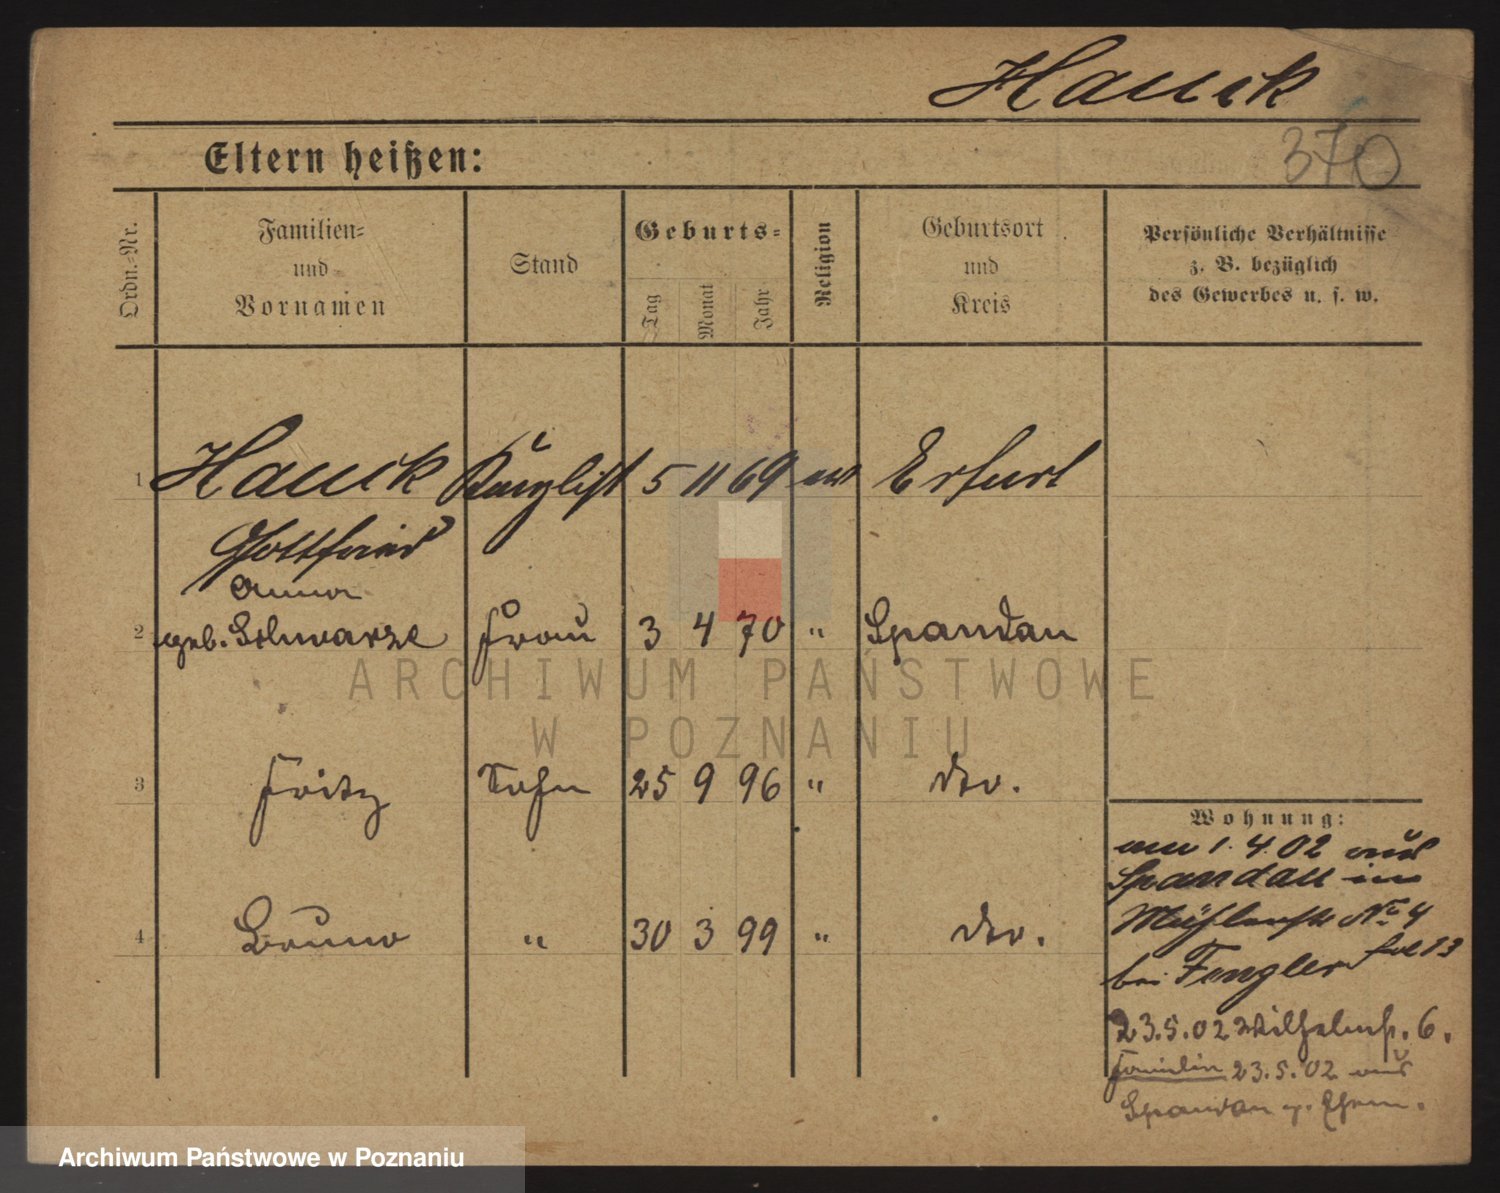 Hauck
370
Eltern heißen:
Ordn.-Nr.
Familien-
und
Vornamen
Stand
Geburts-
Tag
Monat
Jahr
Religion
Geburtsort
und
Kreis
Persönliche Verhältnisse
z. B. bezüglich
des Gewerbes u. s. w.
1 Hauck Kanzlist 5 11 69 ev Erfurt
Gottfried
Anna
2 geb. Schwarze Frau 3 4 70 " Spandau
ARCHIWUM PAŃSTWOWE
W POZNANIU
3 Fritz Sohn 25 9 96 " dto.
Wohnung:
am 1.4.02 aus
Spandau in
Mühlenstr No 4
4 Bruno " 30 3 99 " dto.
bei Fengler
23.5.02 Wilhelmstr. 6.
Familie 23.5.02 aus
Spandau z. Ehem.
Archiwum Państwowe w Poznaniu